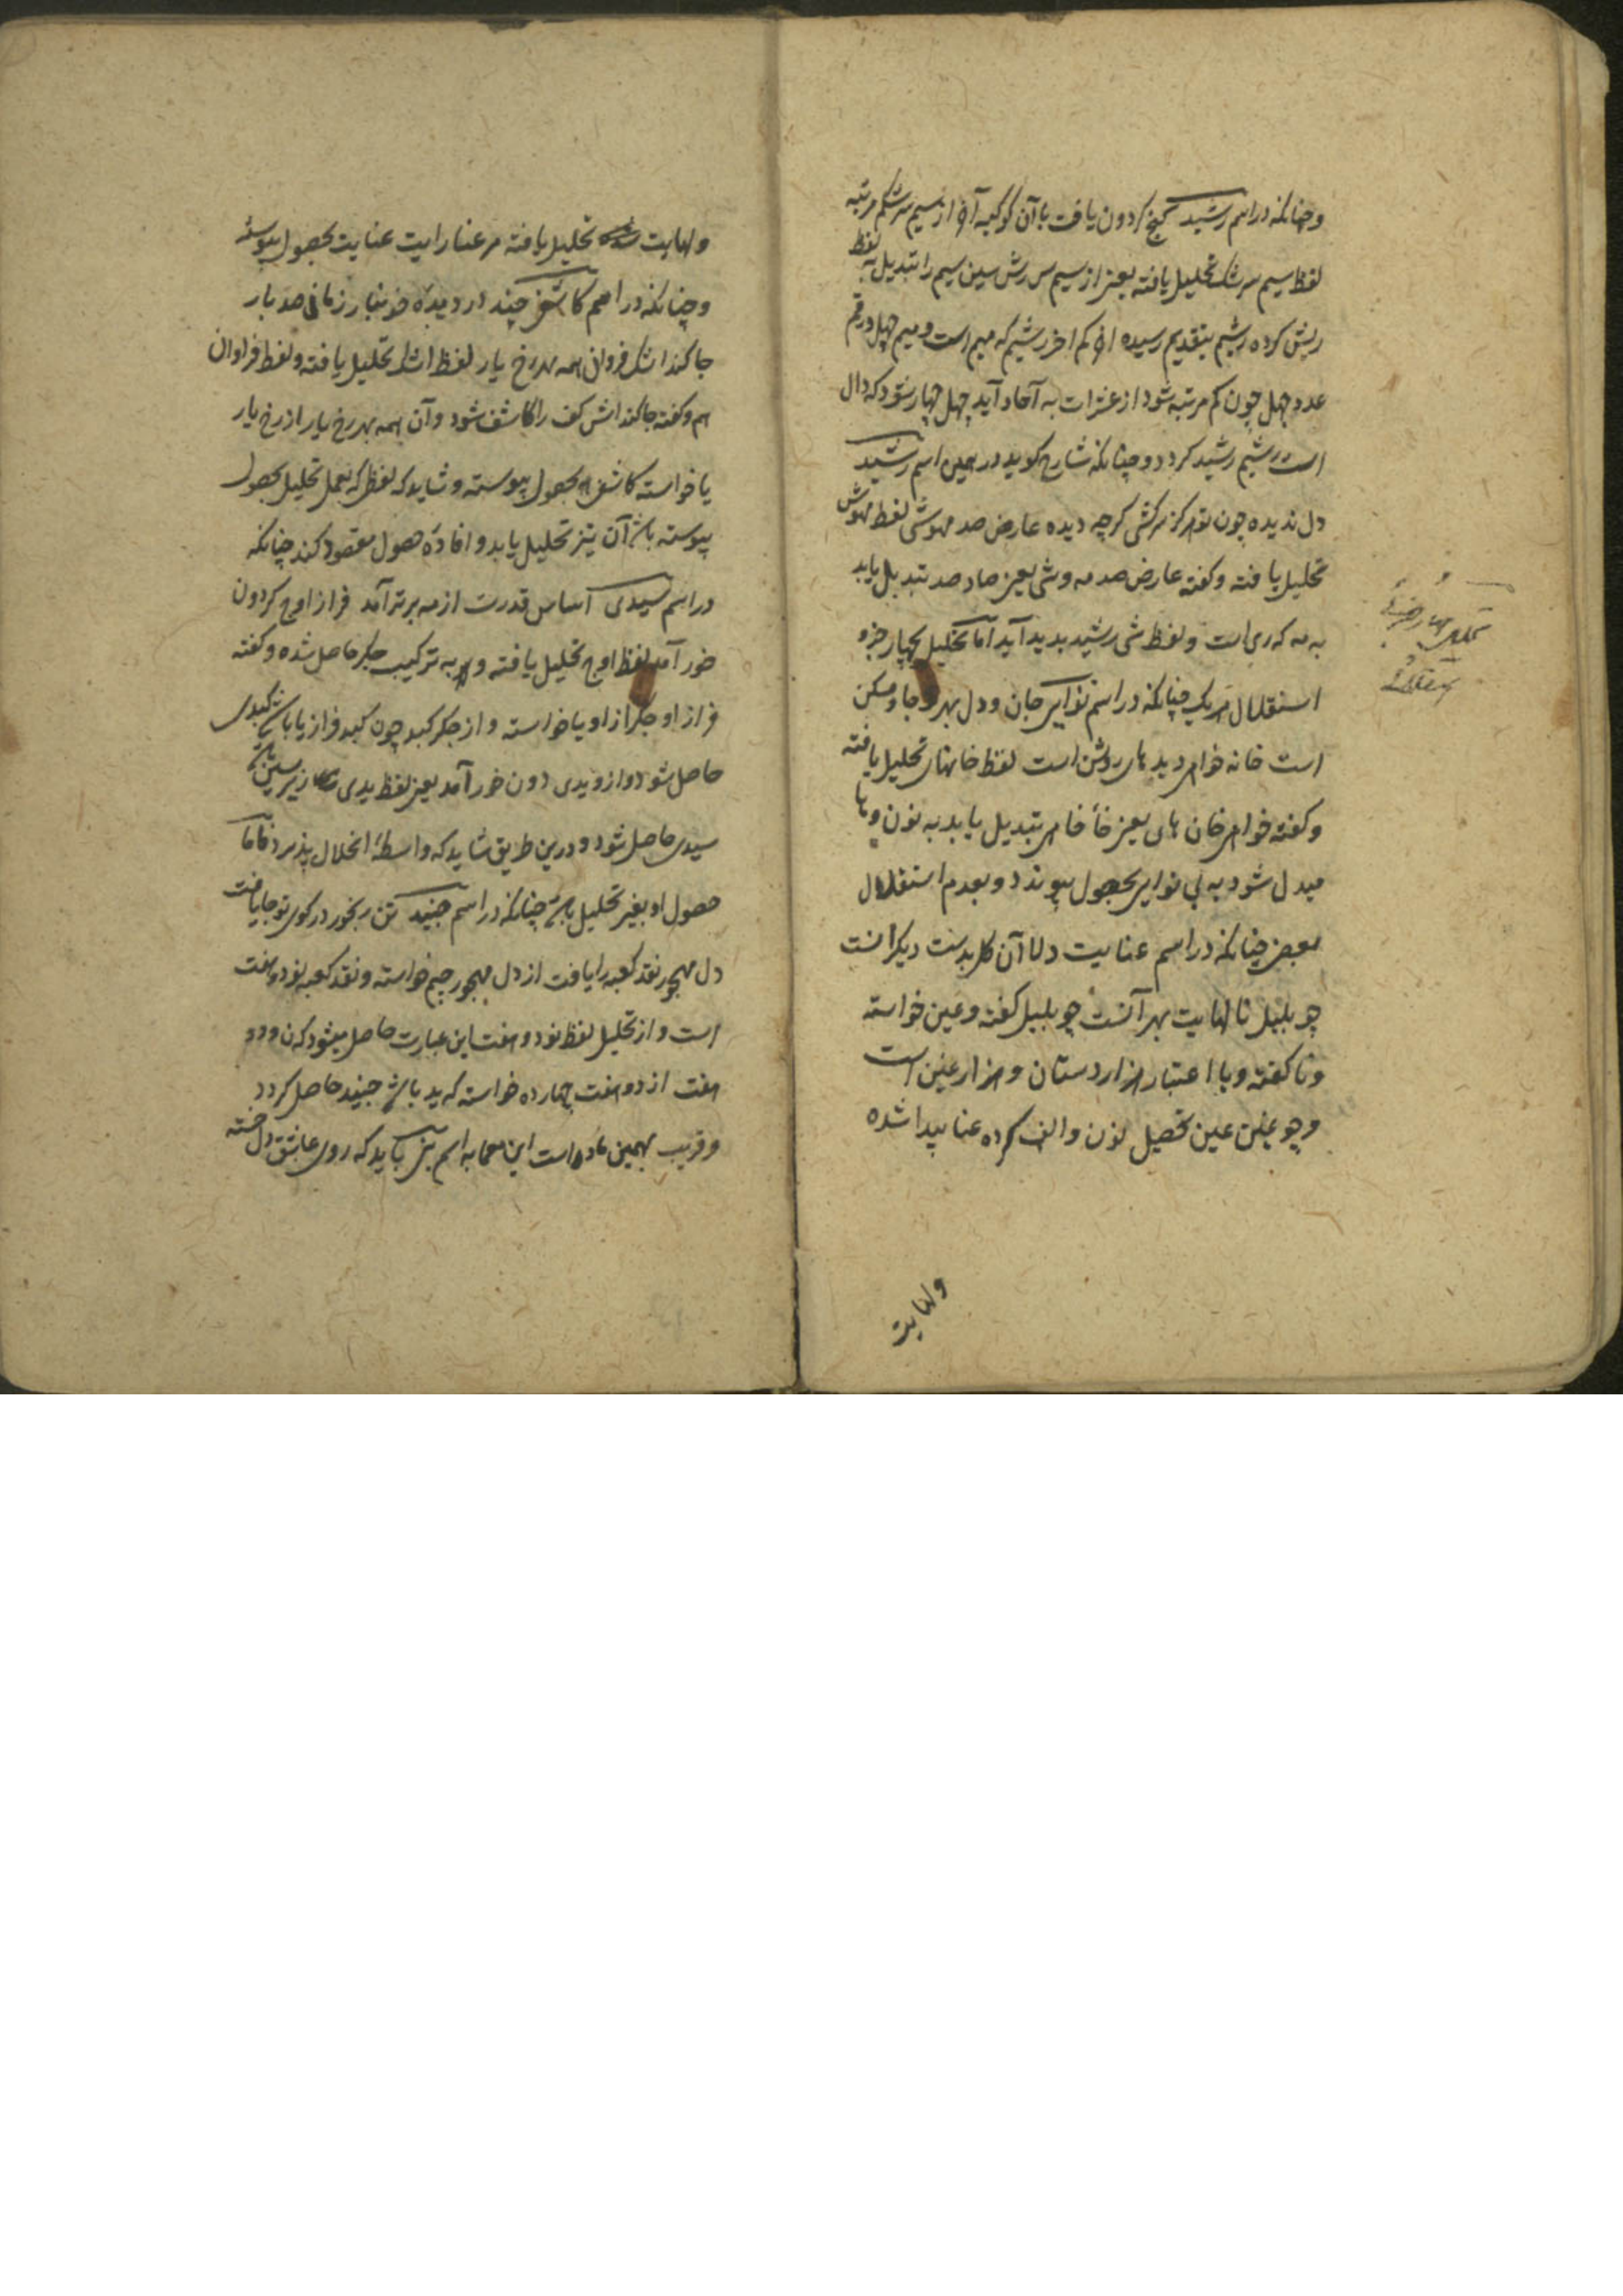 وچنانکه در اسم رشید گنج کردون یافت با آن کوکبه آن از سیم سرشکم مرتبه
لفظ سیم سرشک تحلیل یافته یعنی از سیم س رش سین سیم را تبدیل به لفظ
رش کرده رشیم بتقدیم رسیده ان کم اخر رشیم که میم است و میم چهل در قم
عدد چهل چون کم مرتبه شود از عشرات به آحاد آید چهل چهار شود که دال
است رشیم رشید کردد و چنانکه شارح کوید در همین اسم رشید
دل ندیده چون تو هرکز سرکشی کرچه دیده عارض صد مهوشی لفظ مهوش
تحلیل یافته و کفته عارض صد مه وشی یعنی صاد صد تبدیل یابد
به مه که ری است و لفظ شی رشید پدید آید اما تحلیل بچهار جزو
استقلال هر یک چنانکه در اسم نوایی جان و دل بهر تو جا و مسکن
است خانه خواهی دیدهای روشن است لفظ خانهای تحلیل یافته
و کفته خواهی خان های یعنی خا خاهی تبدیل یابد به نون و ها
مبدل شود به یی نوایی بحصول پیوندد و بعدم استقلال
بعضی چنانکه در اسم عنایت دلا آن کل بدست دیکرانست
چو بلبل تا نهایت بهر آنست چو بلبل کفته و عین خواسته
و تا کفته و با اعتبار هزار دستان و هزار غین است
و چو غین عین تحصیل نون و الف کرده عنا پیدا شده
ولهایت
تحلیل بچهار جزو
استقلال
ولهایت تحلیل یافته مر عنا را یت عنایت بحصول پیوسته
و چنانکه در اسم کاشفی چند در دیدهٔ خونبار زمانی صد بار
جا کند اشک فراوان همه بهر رخ یار لفظ اشک تحلیل یافته و لفظ فراوان
هم و کفته جا کند اش کف را کاشف شود و آن همه بهر رخ یار از رخ یار
یا خواسته کاشفی بحصول پیوسته و شاید که لفظی که بعمل تحلیل بحصول
پیوسته باشد آن نیز تحلیل یابد و افادهٔ حصول مقصود کند چنانکه
در اسم سیدی اساس قدرت از مه برتر آمد فراز اوج کردون
خور آمد لفظ اوج تحلیل یافته و به ترکیب جکر حاصل شده و کفته
فراز او جکر از او یا خواسته و از جکر کبد چون کبد فراز یا باشد کبدی
حاصل شود و از و یدی دون خور آمد یعنی لفظ یدی زیر سین باشد
سیدی حاصل شود و درین طریق شاید که واسطهٔ انحلال پذیرد فاما
حصول او بغیر تحلیل باشد چنانکه در اسم جنید تن رنجور در کوی تو جا یافت
دل مهجور نقد کعبه را یافت از دل مهجور جیم خواسته و نقد کعبه نود و هفت
است و از تحلیل لفظ نود و هفت این عبارت حاصل میشود که ن و دو
هفت از دو هفت چهارده خواسته که ید باشد جنید حاصل کردد
و قریب بهمین ماده است این معما به اسم که روی عاشق دل خسته